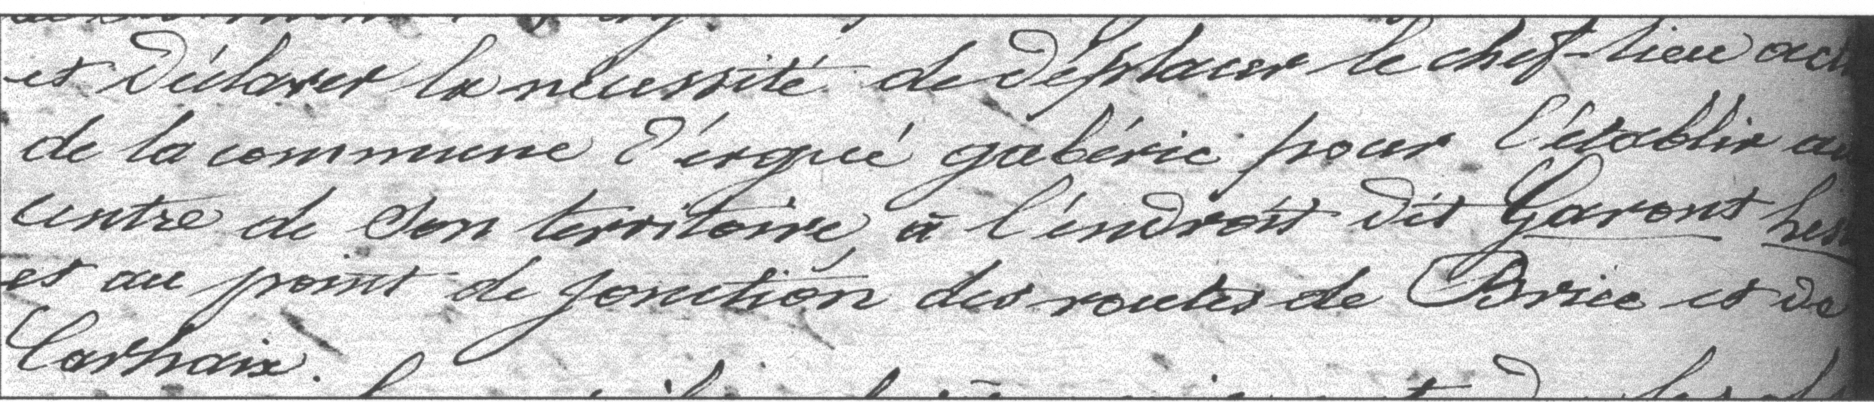 et déclarer la nécessité de déplacer le chef-lieu
de la commune d'ergué gabéric pour l'établir au
centre de son territoire, à l'endroit dit Garont
et au point de jonction des routes de Briec et de
Carhaix.